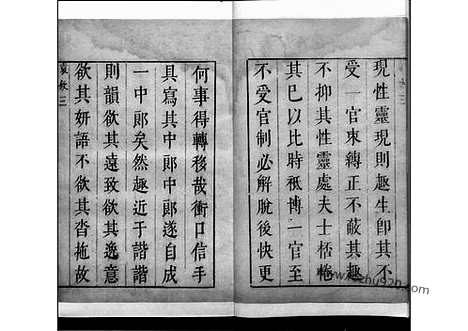 現性靈現則趣生即其不
受一官束縛正不蔽其趣
不抑其性靈處夫士栝棬
其已以比時祗博一官至
不受官制必解脫後快更
何事得轉移哉衝口信手
具寫其中郎中郎遂自成
一中郎矣然趣近于諧諧
則韻欲其遠致欲其逸意
欲其妍語不欲其沓拖故